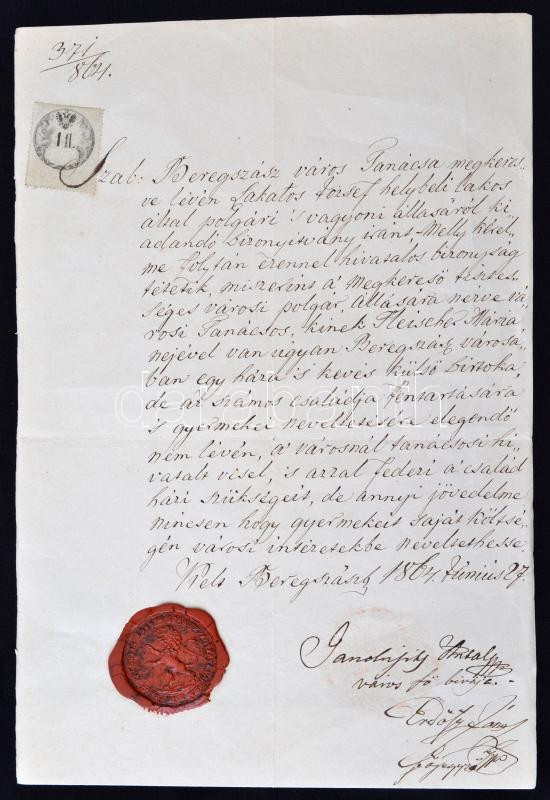 371
864.
1 fl.
Szab: Beregszász város Tanácsa megkeres„
ve lévén Lakatos József helybeli lakos
által polgári 's vagyoni állásáról ki„
adandó bizonyitvány iránt. Mely kérel„
me folytán ezennel hivatalos bizonyság
tétetik, miszerint a' megkereső tisztes„
séges városi polgár, állására nézve vá„
rosi Tanácsos, kinek Fleischer Mária
nejével van ugyan Beregszász városá„
ban egy háza is kevés külső birtoka,
de az számos családja fentartására
is gyermekei neveltetésére elegendő
nem lévén, a' városnál tanácsosi hi„
vatalt visel, is azzal fedezi a' család
házi szükségeit, de annyi jövedelme
nincsen hogy gyermekeit saját költsé„
gén városi intézetekbe neveltethesse.
Kelt Beregszász 1864. Június 27.
darabanth
Antal
város fő birája.
Erdősy János
főjegyző